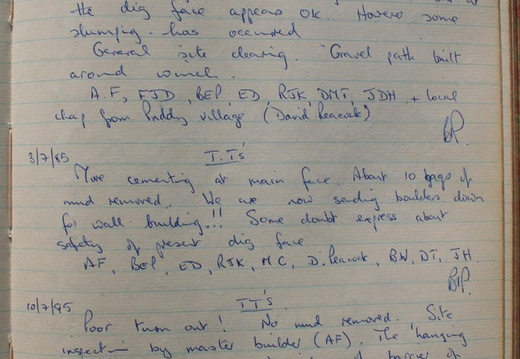 the dig face appears OK. However some
slumping has occurred
General site clearing. Gravel path built
around winch.
A.F, FJD, BEP, ED, RJK, DMT, JDH + local
chap from Priddy village (David Peacock)
BP.
3/7/95 T.T's
More cementing at main face. About 10 bags of
mud removed. We are now sending boulders down
for wall building!!! Some doubt express about
safety of present dig face
AF, BEP, ED, RJK, MC, D. Peacock, BW, DT, JH.
BEP.
10/7/95 TT's.
Poor turn out! No mud removed. Site
inspection by master builder (AF). The 'hanging